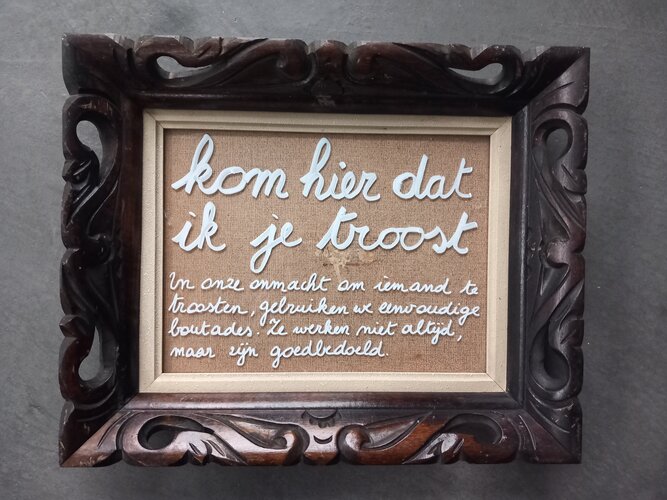 kom hier dat
ik je troost
In onze onmacht om iemand te
troosten, gebruiken we eenvoudige
boutades. Ze werken niet altijd,
maar zijn goedbedoeld.